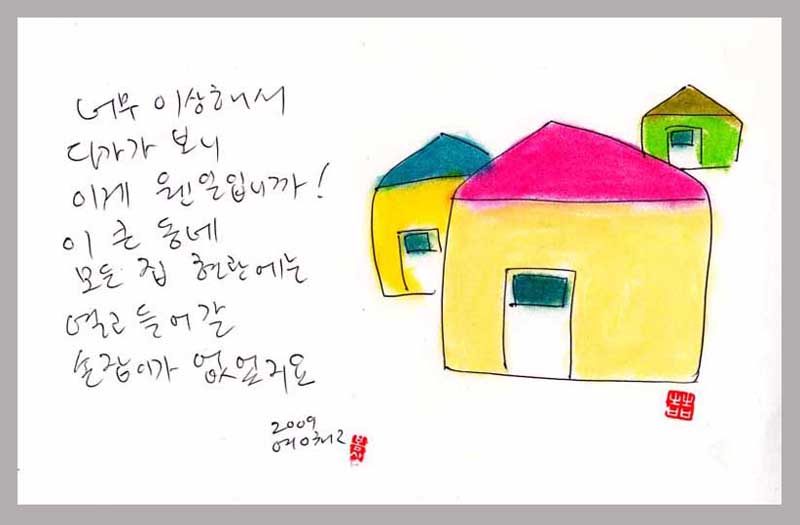 너무 이상해서
다가가 보니
이게 웬일입니까!
이 큰 동네
모든 집 현관에는
열고 들어갈
손잡이가 없었지요
2009